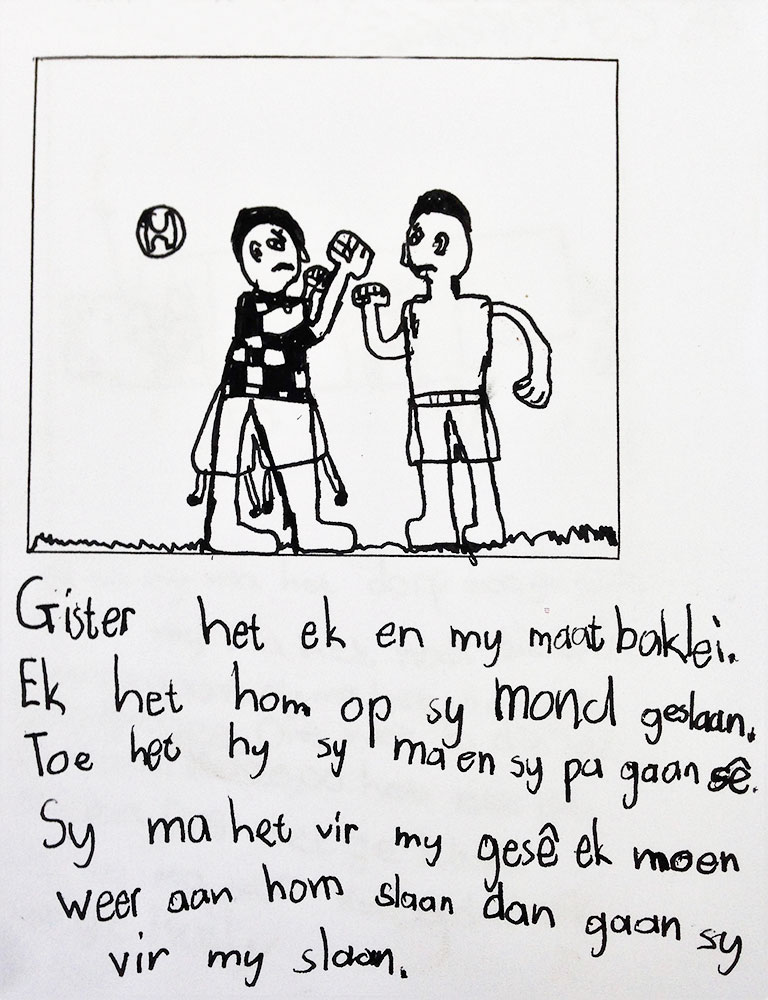 Gister het ek en my maat baklei.
Ek het hom op sy mond geslaan.
Toe het hy sy ma en sy pa gaan sê.
Sy ma het vir my gesê ek moen
weer aan hom slaan dan gaan sy
vir my slaan.